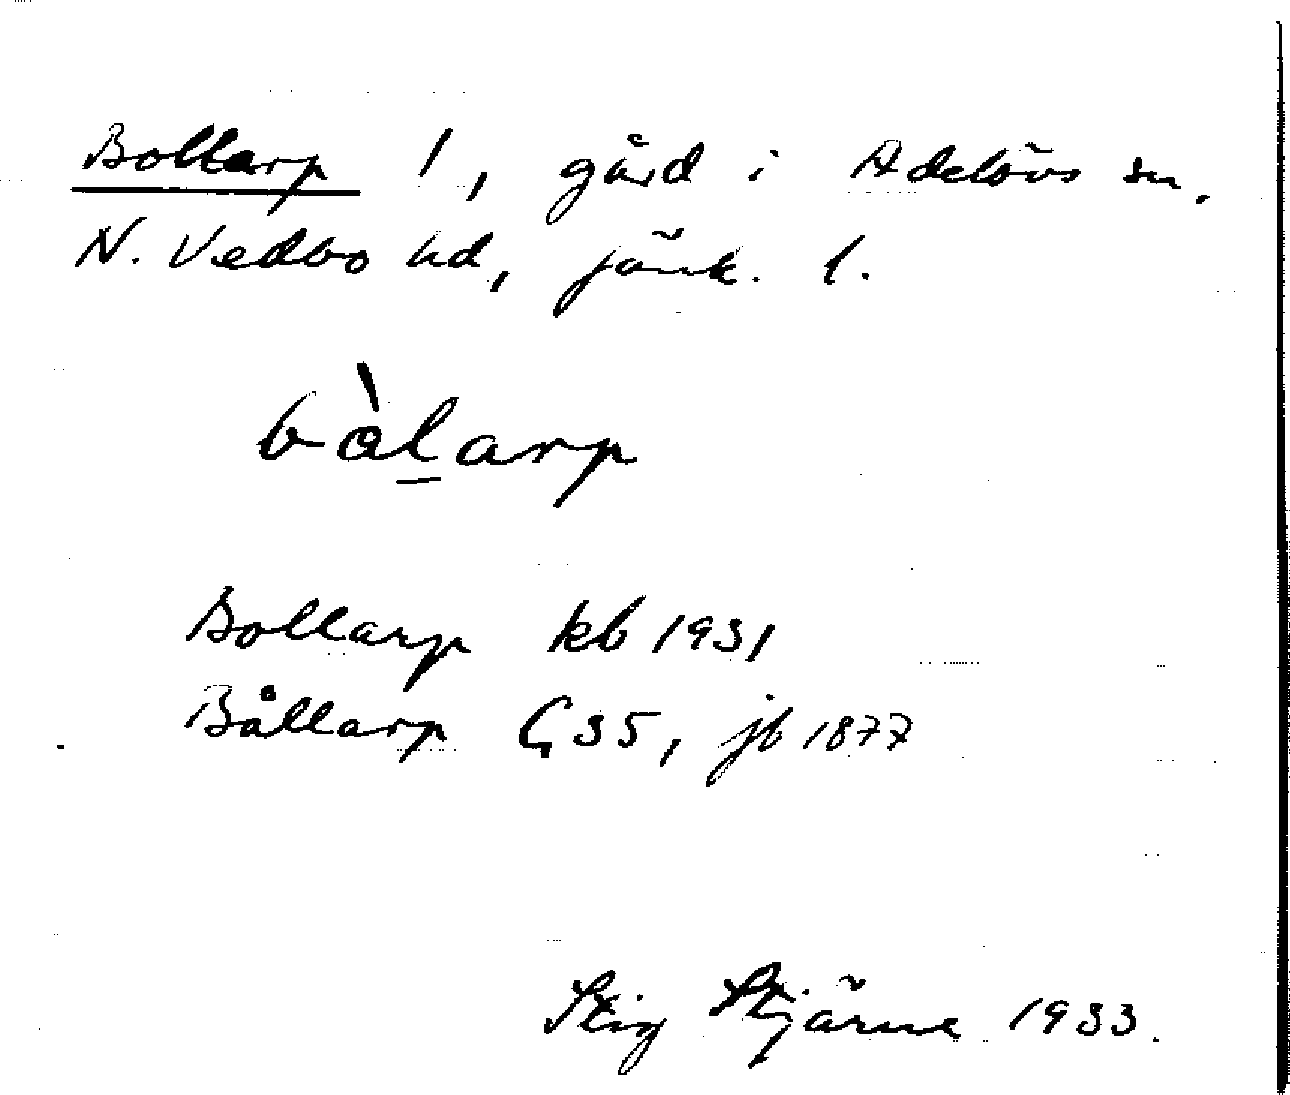 Bollarp 1, gård i Adelövs sn,
N. Vedbo hd, Jönk. l.
bòl̠arp
Bollarp kb 1931
Bållarp G35, jb 1877
Stig Stjärne 1933.